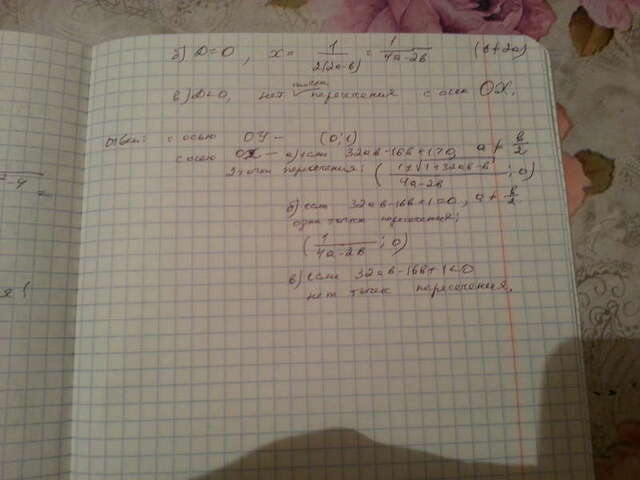 б) D=0, x = 1/2(2a-b) = 1/4a-2b (b≠2a)
в) D<0, нет точки пересечения с осью OX,
Ответ: с осью OY — (0;1)
с осью OX — а) если 32ab-16b+1>0, a ≠ b/2
точки пересечения: ( ; 0)
4a-2b
б) если 32ab-16b+1=0, a ≠ b/2
одна точка пересечения:
(1/4a-2b ; 0)
в) если 32ab-16b+1<0
нет точек пересечения.